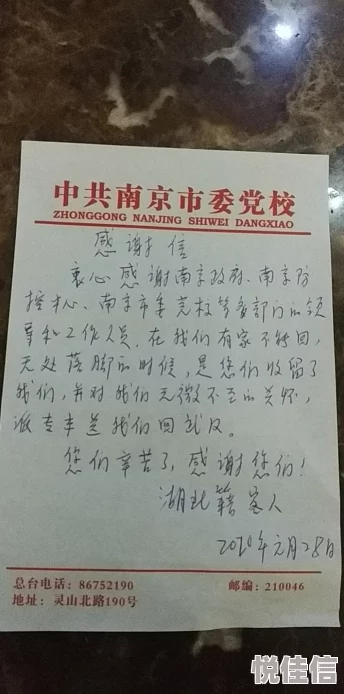 中共南京市委党校
ZHONGGONG NANJING SHIWEI DANGXIAO
感谢信
衷心感谢南京政府、南京防
控中心、南京市委党校等各部门的领
导和工作人员，在我们有家不能回，
无处落脚的时候，是您们收留了
我们，并对我们无微不至的关怀，
派专车送我们回武汉。
您们辛苦了，感谢您们！
湖北籍客人
2020年元月28日
总台电话：86752190
邮编：210046
地址：灵山北路190号
悦佳信